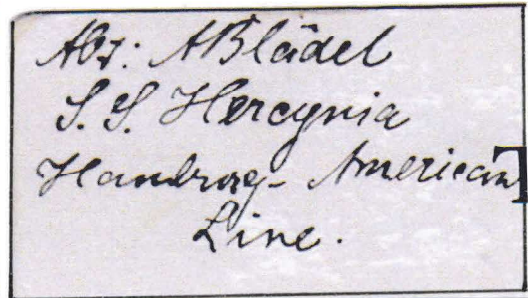 Abs: A Blädel
S. S. Hercynia
Hambrog- American
Line.